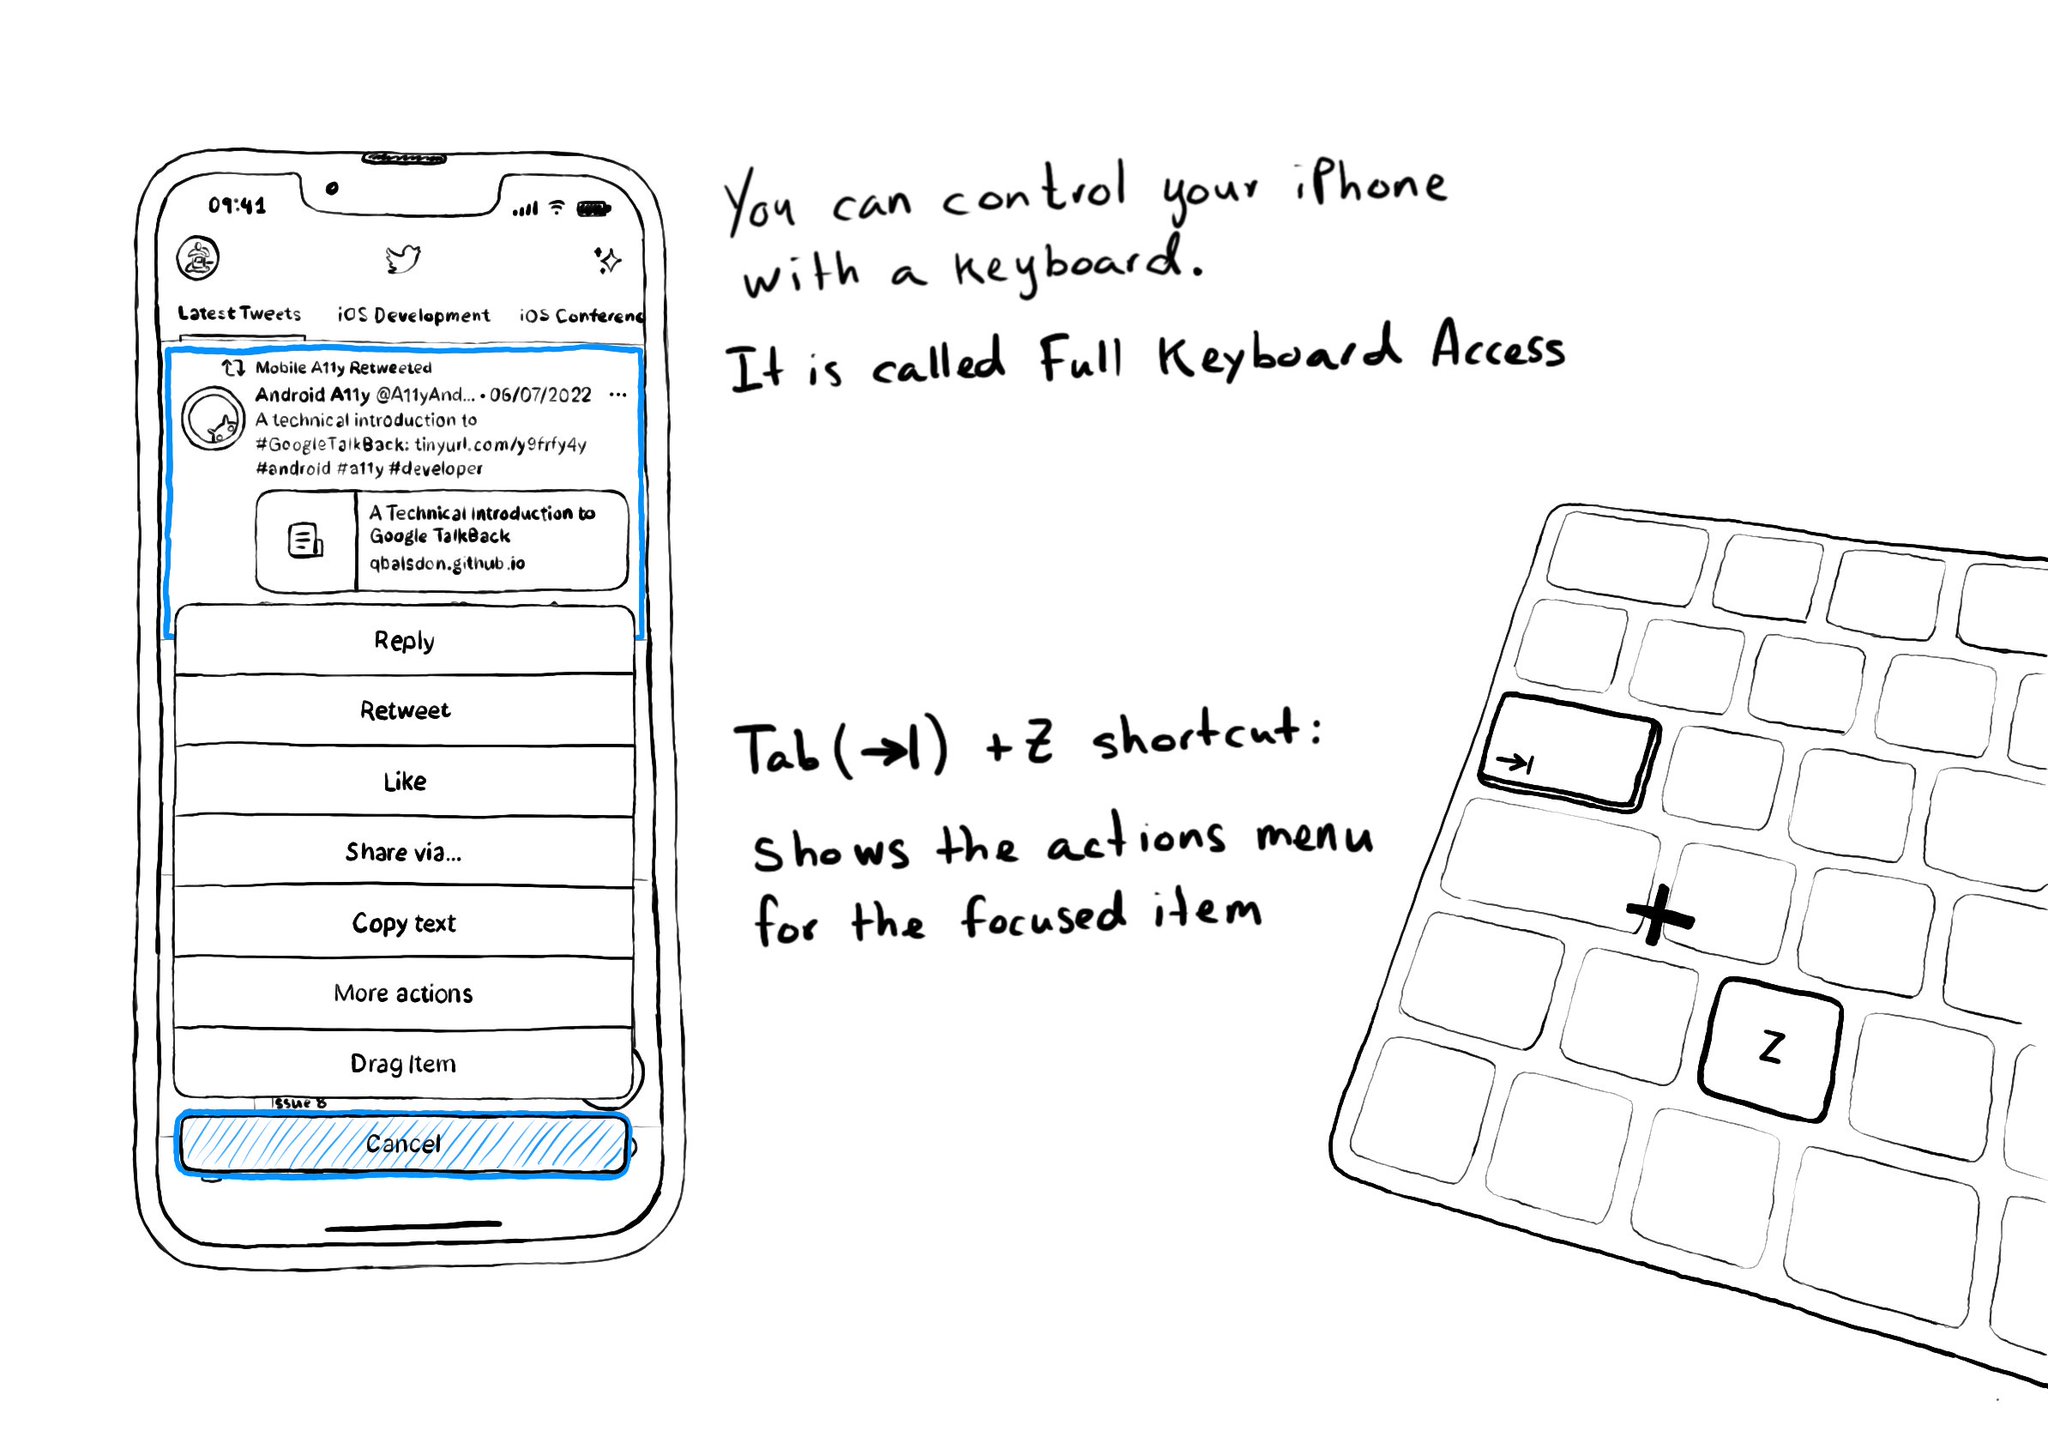 09:41
Latest Tweets iOS Development iOS Conferenc
Mobile A11y Retweeted
Android A11y @A11yAnd... • 06/07/2022 ...
A technical introduction to
#GoogleTalkBack: tinyurl.com/y9frfy4y
#android #a11y #developer
A Technical Introduction to
Google TalkBack
qbalsdon.github.io
Reply
Retweet
Like
Share via...
Copy text
More actions
Drag Item
Issue 8
Cancel
You can control your iPhone
with a keyboard.
It is called Full Keyboard Access
Tab (→|) + Z shortcut:
shows the actions menu
for the focused item
→|
+
Z